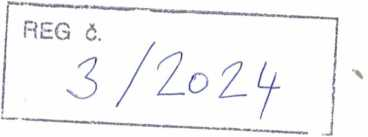 REG č.
3/2024